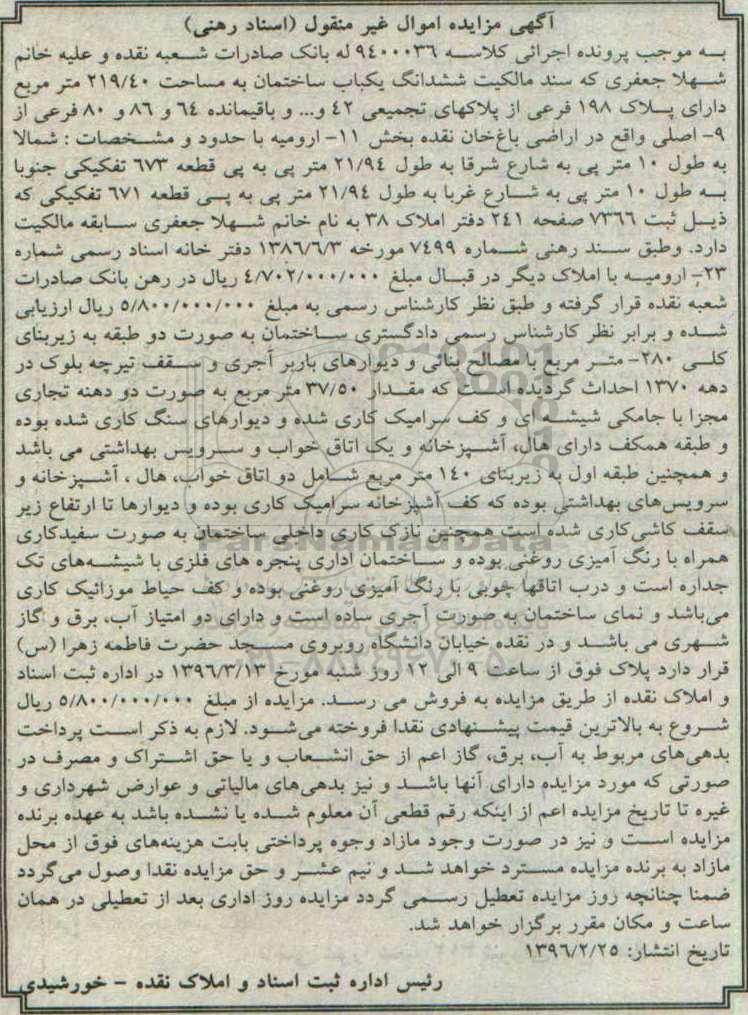 آگهی مزایده اموال غیر منقول (اسناد رهنی)
به موجب پرونده اجرائی کلاسه ۹۴۰۰۰۳۶ له بانک صادرات شعبه نقده و علیه خانم
شهلا جعفری که سند مالکیت ششدانگ یکباب ساختمان به مساحت ۲۱۹/۴۰ متر مربع
دارای پلاک ۱۹۸ فرعی از پلاکهای تجمیعی ۴۲ و... و باقیمانده ۶۴ و ۸۶ و ۸۰ فرعی از
۹- اصلی واقع در اراضی باغ‌خان نقده بخش ۱۱- ارومیه با حدود و مشخصات : شمالا
به طول ۱۰ متر پی به شارع شرقا به طول ۲۱/۹۴ متر پی به پی قطعه ۶۷۳ تفکیکی جنوبا
به طول ۱۰ متر پی به شارع غربا به طول ۲۱/۹۴ متر پی به پی قطعه ۶۷۱ تفکیکی که
ذیل ثبت ۷۳۶۶ صفحه ۲۴۱ دفتر املاک ۳۸ به نام خانم شهلا جعفری سابقه مالکیت
دارد. وطبق سند رهنی شماره ۷۴۹۹ مورخه ۱۳۸۶/۶/۳ دفتر خانه اسناد رسمی شماره
۲۳- ارومیه با املاک دیگر در قبال مبلغ ۴/۷۰۲/۰۰۰/۰۰۰ ریال در رهن بانک صادرات
شعبه نقده قرار گرفته و طبق نظر کارشناس رسمی به مبلغ ۵/۸۰۰/۰۰۰/۰۰۰ ریال ارزیابی
شده و برابر نظر کارشناس رسمی دادگستری ساختمان به صورت دو طبقه به زیربنای
کلی ۲۸۰- متر مربع با مصالح بنائی و دیوارهای باربر آجری و سقف تیرچه بلوک در
دهه ۱۳۷۰ احداث گردیده است که مقدار ۳۷/۵۰ متر مربع به صورت دو دهنه تجاری
مجزا با جامکی شیشه ای و کف سرامیک کاری شده و دیوارهای سنگ کاری شده بوده
و طبقه همکف دارای هال، آشپزخانه و یک اتاق خواب و سرویس بهداشتی می باشد
و همچنین طبقه اول به زیربنای ۱۴۰ متر مربع شامل دو اتاق خواب، هال ، آشپزخانه و
سرویس‌های بهداشتی بوده که کف آشپزخانه سرامیک کاری بوده و دیوارها تا ارتفاع زیر
سقف کاشی کاری شده است همچنین نازک کاری داخلی ساختمان به صورت سفیدکاری
همراه با رنگ آمیزی روغنی بوده و ساختمان اداری پنجره های فلزی با شیشه‌های تک
جداره است و درب اتاقها چوبی با رنگ آمیزی روغنی بوده و کف حیاط موزائیک کاری
می‌باشد و نمای ساختمان به صورت آجری ساده است و دارای دو امتیاز آب، برق و گاز
شهری می باشد و در نقده خیابان دانشگاه روبروی مسجد حضرت فاطمه زهرا (س)
قرار دارد پلاک فوق از ساعت ۹ الی ۱۲ روز شنبه مورخ ۱۳۹۶/۳/۱۳ در اداره ثبت اسناد
و املاک نقده از طریق مزایده به فروش می رسد. مزایده از مبلغ ۵/۸۰۰/۰۰۰/۰۰۰ ریال
شروع به بالاترین قیمت پیشنهادی نقدا فروخته می‌شود. لازم به ذکر است پرداخت
بدهی‌های مربوط به آب، برق، گاز اعم از حق انشعاب و یا حق اشتراک و مصرف در
صورتی که مورد مزایده دارای آنها باشد و نیز بدهی‌های مالیاتی و عوارض شهرداری و
غیره تا تاریخ مزایده اعم از اینکه رقم قطعی آن معلوم شده یا نشده باشد به عهده برنده
مزایده است و نیز در صورت وجود مازاد وجوه پرداختی بابت هزینه‌های فوق از محل
مازاد به برنده مزایده مسترد خواهد شد و نیم عشر و حق مزایده نقدا وصول می‌گردد
ضمنا چنانچه روز مزایده تعطیل رسمی گردد مزایده روز اداری بعد از تعطیلی در همان
ساعت و مکان مقرر برگزار خواهد شد.
تاریخ انتشار: ۱۳۹۶/۲/۲۵
رئیس اداره ثبت اسناد و املاک نقده - خورشیدی
ParsNamadData